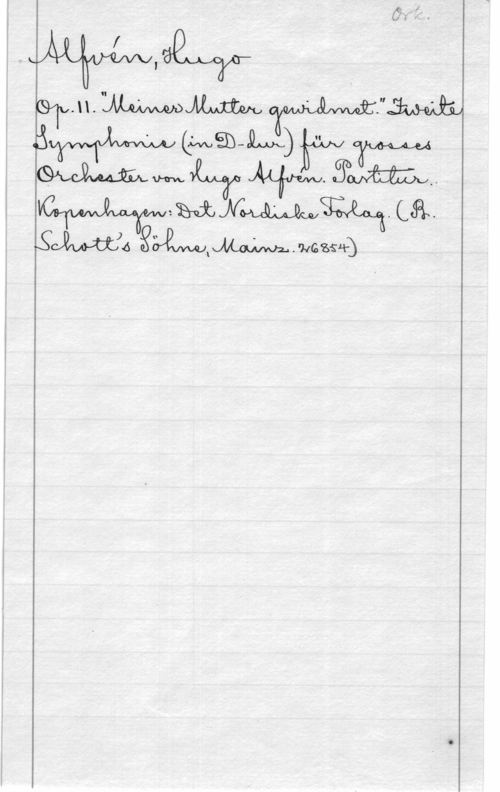 Ork.
Alfvén, Hugo
Op. 11. "Meiner Mutter gewidmet." Zweite
Symphonie (in D-dur) für grosses
Orchester von Hugo Alfvén. Partitur.
Kopenhagen: Det Nordiske Forlag. (B.
Schott's Söhne, Mainz. 26854)